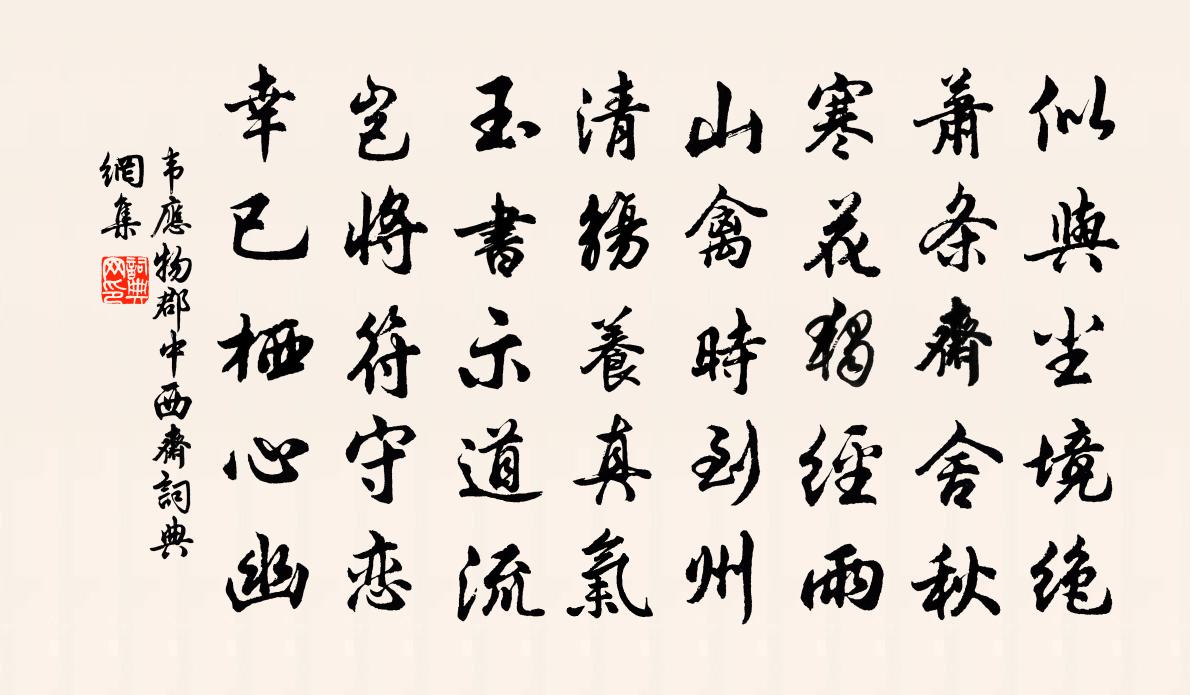 似與尘境绝
蕭条齋舍秋
寒花獨經雨
山禽時到州
清觴養真氣
玉書示道流
岂將符守恋
幸已栖心幽
韦應物郡中西齋詞典
網集
詞典网印